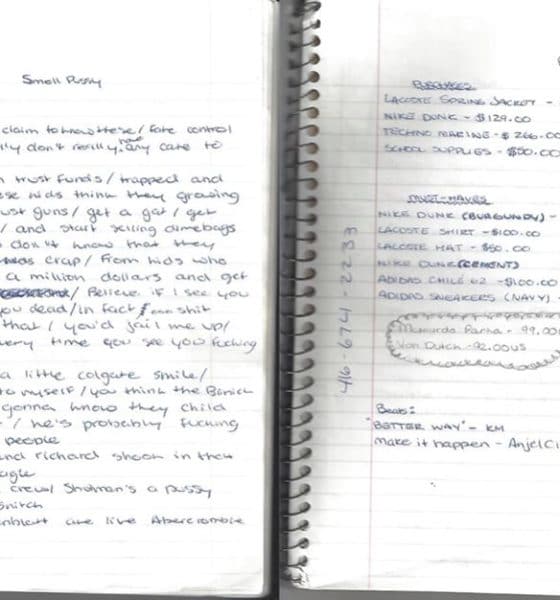 Small Pussy
claim to know these/ fate control
lly don't really have any care to
trust funds/ trapped and
se kids think they growing
ust guns/ get a gat/ get
/ and start selling dimebags
don't know that they
crap/ From kids who
a million dollars and get
/ Believe if I see you
ou dead/in fact shit
that/ you'd jail me up/
very time you see you fucking
a little colgate smile/
to myself/you think the
gonna know they child
/ he's probably fucking
people
and richard shook in that
crew/ Shotman's a pussy
snitch
are like Abercrombie
416-674-2233
PURCHASES
LACOSTE SPRING JACKET -
NIKE DUNK - $129.00
TECHNO MARINE - $266.00
SCHOOL SUPPLIES - $50.00
MUST-HAVES
NIKE DUNK (BURGUNDY) -
LACOSTE SHIRT - $100.00
LACOSTE HAT - $50.00
NIKE DUNK (CEMENT)
ADIDAS CHILE 62 - $100.00
ADIDAS SNEAKERS (NAVY)
Parka - 99.00
Von Dutch - 92.00US
Beats:
"BETTER WAY" - KM
make it happen - AnjelCi